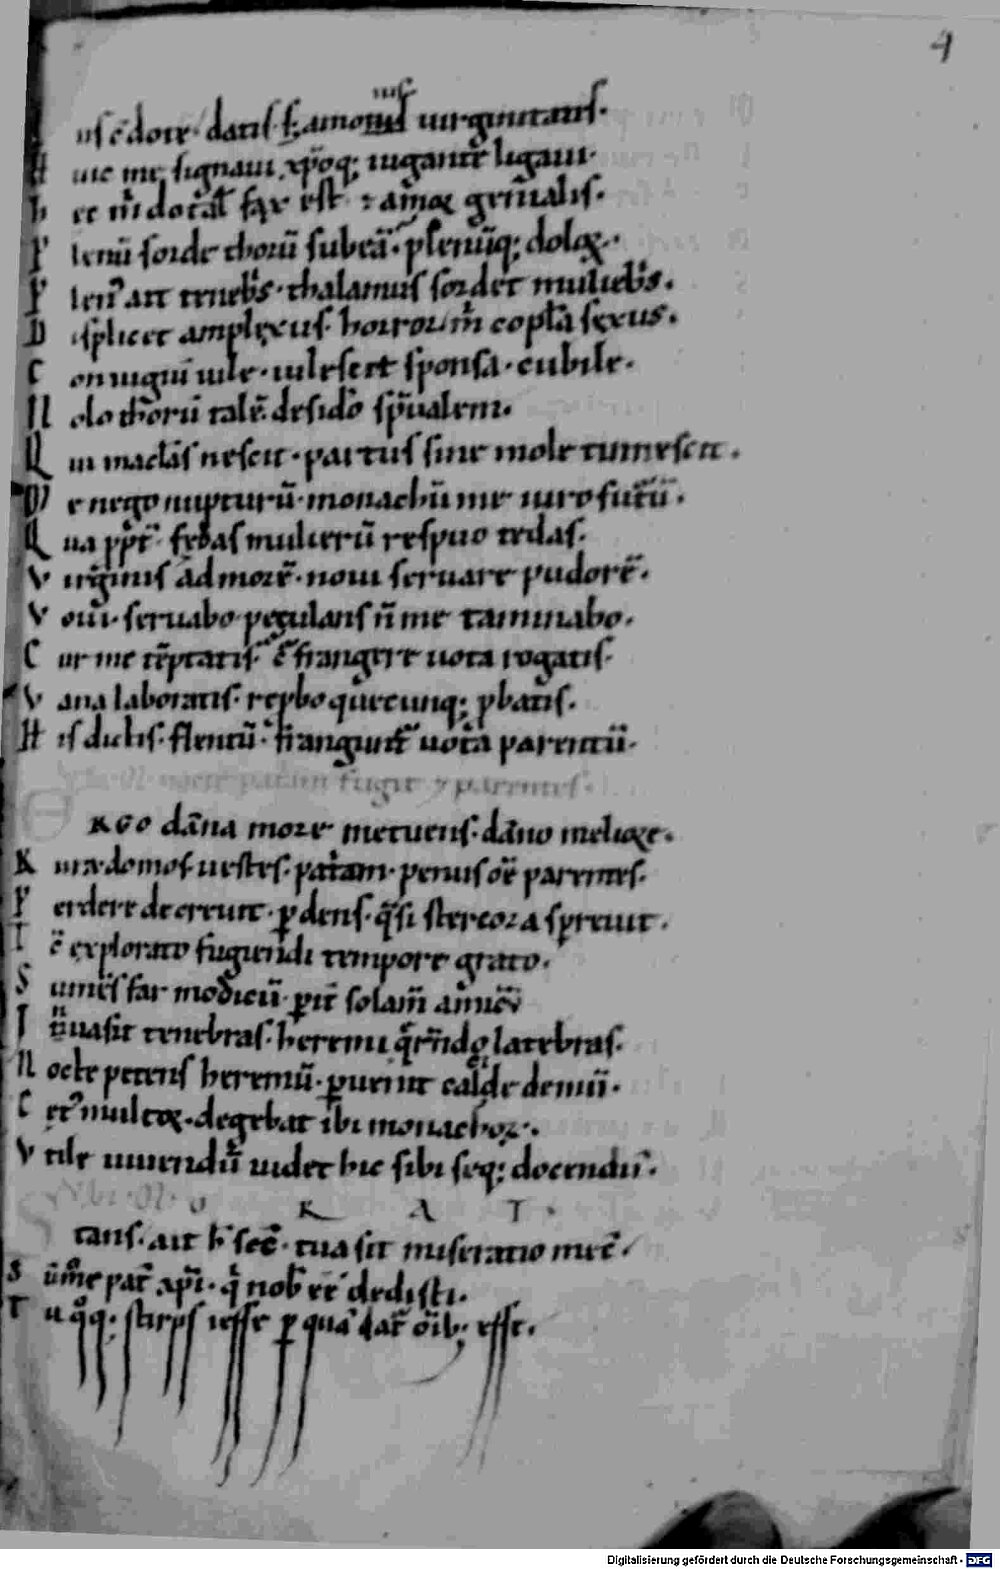 4
uſ e dote datiſ ſ; amor uirginitatiſ.
H uic me ſignaui xp̄oq; iugante ligaui.
h ec m̄ dotał fax est ⁊ amoꝝ geniałiſ.
P lenū ſorde thorū ſubeā. plenūq; doloꝝ.
P len᷒ ait tenebͥs. thalamuſ ſordet muliebͥs.
D iſplicet amplexuſ. horrori m̄ copła ſexus.
C oniugiū uile. uileſcit ſponſa. cubile.
N olo thorū talē. deſidͦo ſpūalem.
Q ui macłaſ neſcit. partuſ ſine mole tumeſcit.
M e nego nupturū. monachū me iuro futurū.
Q ua ppt̄. fędaſ mulierū reſpuo tedaſ.
V irginiſ ad morē. noui ſeruare pudorē.
V oui. ſeruabo peculanſ n̄ me taminabo.
C ur me tēptatiſ c̄ frangere uota rogatiſ.
V ana laboratiſ. rep̱bo quecunq; p̱batiſ.
H iſ dictiſ. flentū. frangiunt᷑ uota parentū.
M. nocte patriam fugit ⁊ parenteſ.
E RGO dāna more metuenſ. dāno melioꝛe.
R uradomoſ ueſteſ. patͥam. penuſ oꝛē parenteſ.
P erdere decreuit. ꝑdenſ. qͣſi ſtercoꝛa ſp̱reuit.
T c̄ explorato fugiendi tempore grato.
S umēſ far modicū. ꝑit᷑ ſolam̄ amicū
I nuaſit tenebraſ. heremi qͣrendo latebraſ.
N octe petenſ heremū. ꝑuenit demū.
C et᷒ multoꝝ. degebat ibi monachoꝝ.
V tile uiuendū uidet hic ſibi ſeq; docendū.
Vbi M. O R A T.
S tanſ. ait h̄ ſecū. tua ſit miſeratio mecū.
S ūme pat᷑ xp̄i. qͥ nob̄ ee᷑ dediſti.
T u qͦq; ſtirpſ ieſſe ꝑ quā dat᷑ oīb; eſſe.
Digitalisierung gefördert durch die Deutsche Forschungsgemeinschaft - DFG